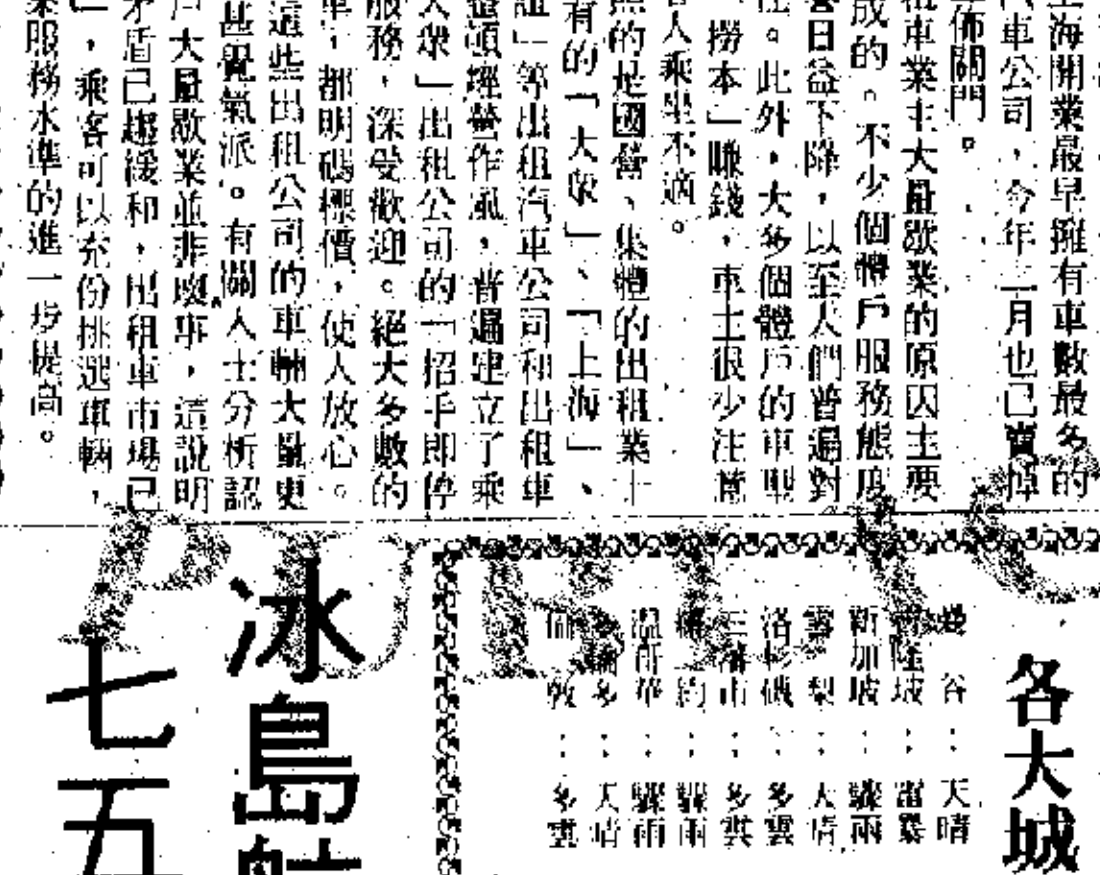 上海開業最早擁有車數最多的
汽車公司，今年二月也已賣掉
佈關門。
租車業主大量歇業的原因主要
成的。不少個體戶服務態度
譽日益下降，以至人們普遍對
。此外，大多個體戶的車型
撈本」賺錢，車主很少注意
人乘坐不適。
照的是國營、集體的出租業
有的「大衆」、「上海」、
誼」等出租汽車公司和出租車
整頓經營作風，普遍建立了乘
大衆」出租公司的一招手即停
服務，深受歡迎。絕大多數的
車，都明碼標價，使人放心。
這些出租公司的車輛大量更
甚覺氣派。有關人士分析認
戶大量歇業並非壞事，這說明
矛盾已趨緩和，出租車市場已
」，乘客可以充份挑選車輛，
業服務水準的進一步提高。
PUBLIC
各大城
曼谷：天晴
吉隆坡：雷暴
新加坡：驟雨
雪梨：大晴
洛杉磯：多雲
三藩市：多雲
紐約：驟雨
溫哥華：驟雨
多倫多：天晴
倫敦：多雲
冰島航
七五